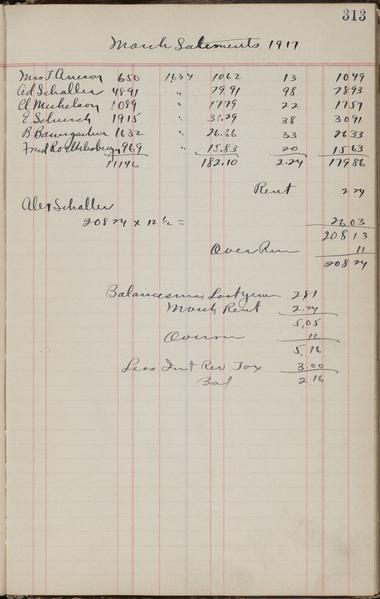 313
March Satements 1917
Mrs T. Aneson 650 1634 1062 13 1049
Ad Schaller 4891 " 7991 98 7893
Cl Michelson 1089 " 1779 22 1757
E. Schurch 1915 " 31.29 38 3091
B Baumgartner 1632 " 26.66 33 2633
Fred 969 " 15.83 20 1563
11146 182.10 2.24 17986
Rent 2 24
Alex Schaller
208 24 x 12 1/2 = 26 03
208 13
Over Run 11
208 24
Balance last year 2 81
March Rent 2.24
5.05
Overrun 11
5.16
Less Int Rev Tax 3.00
Bal 2.16